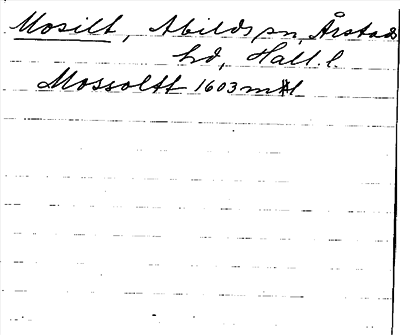 Mosilt, Abilds sn, Årstads
hd, Hall. l.
Mossoltt 1603 mtl